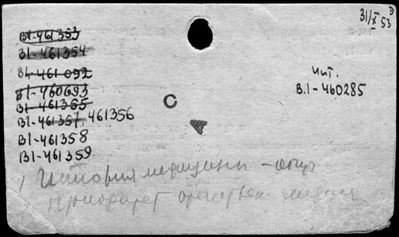 31/X 53
B1-461353
B1-461354
B1-461092
B1-460693
B1-461365
B1-461357 461356
B1-461358
B1-461359
чит.
B.1-460285
С
История медицины
приоритет отечествен.